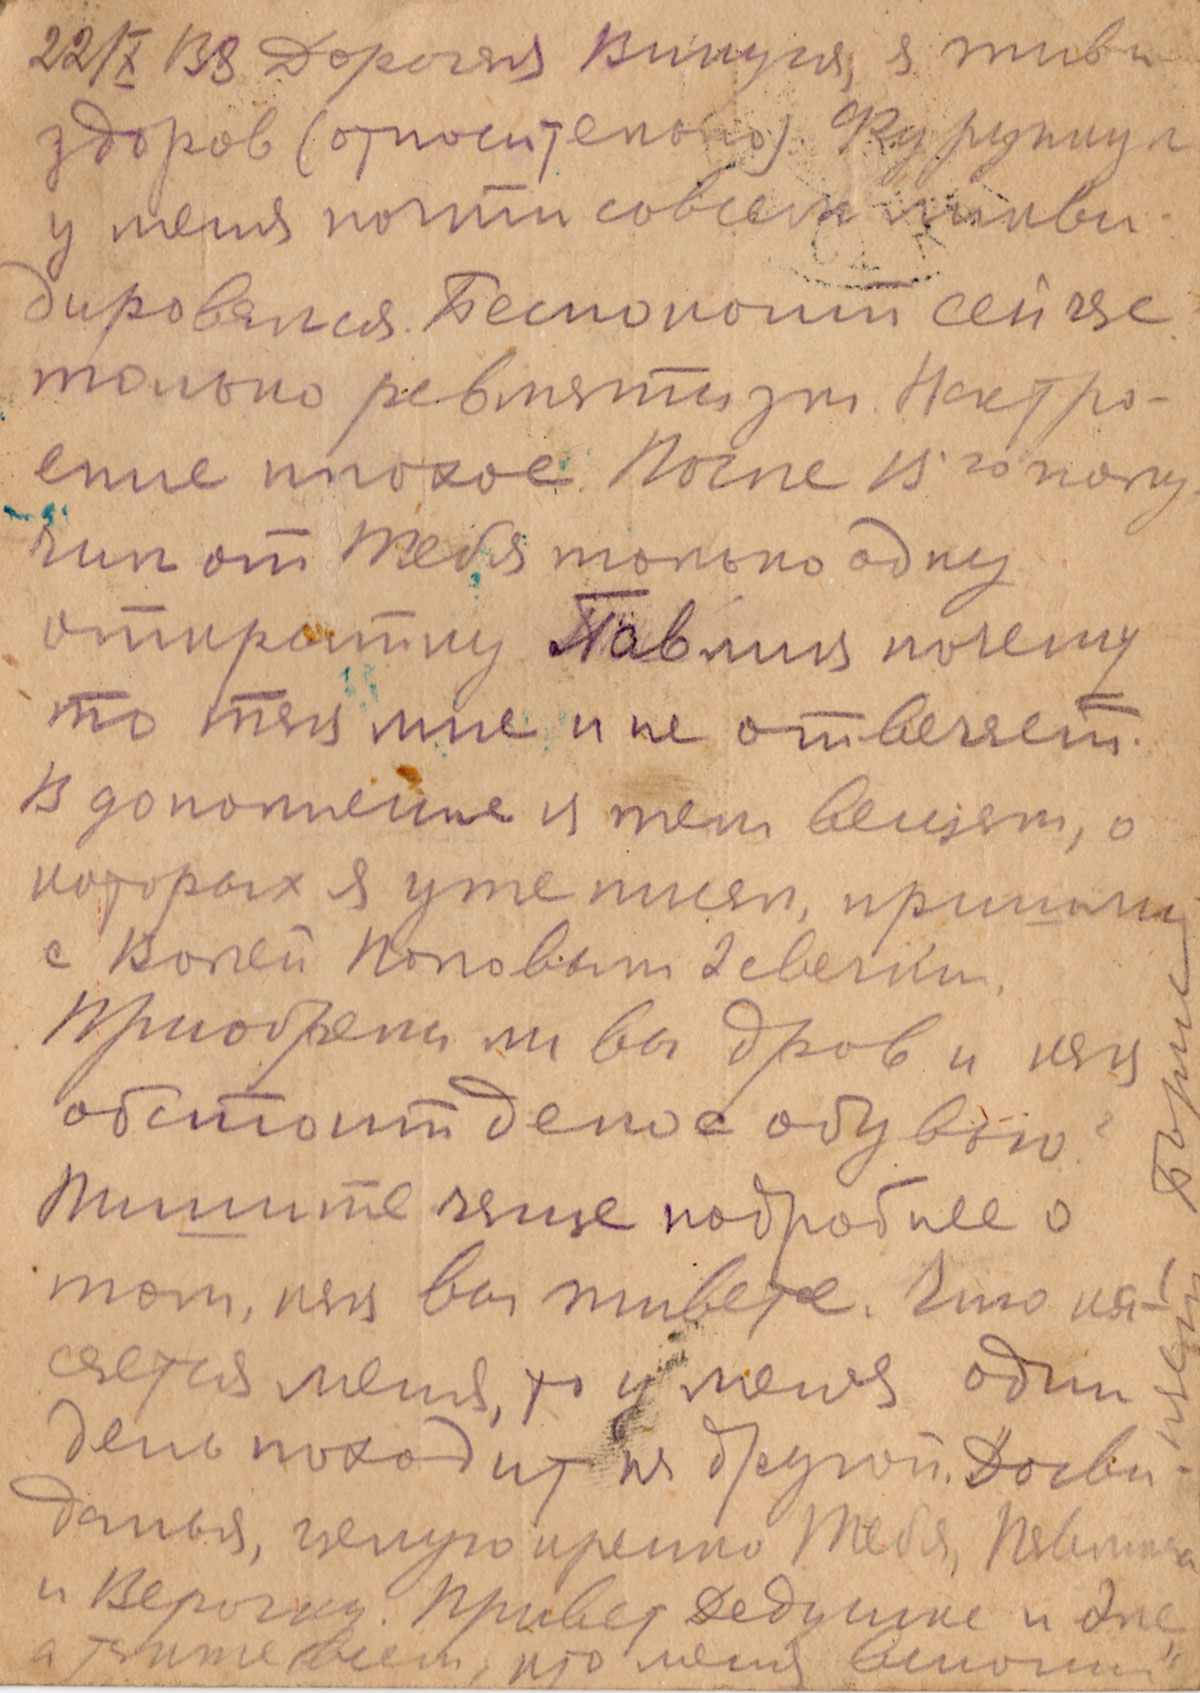 22/X Дорогая Викуся, я жив и
здоров (относительно). Фурункул
у меня почти совсем ликви-
дировался. Беспокоит сейчас
только ревматизм. Настро-
ение плохое. После 15го полу
чил от Тебя только одну
открытку Павлик почему
то так мне и не отвечает.
В дополнение к тем вещам, о
которых я уже писал, пришли
с Волей Поповым 2 свечки.
Приобрели ли вы дров и как
обстоит дело с обувью?
Пишите чаще подробнее о
том, как вы живете. Что ка-
сается меня, то у меня один
день походит на другой. Досви-
данья, целую крепко Тебя, Павлика
и Верочку. Привет Дедушке и
а также всем, кто меня вспомин
Борис